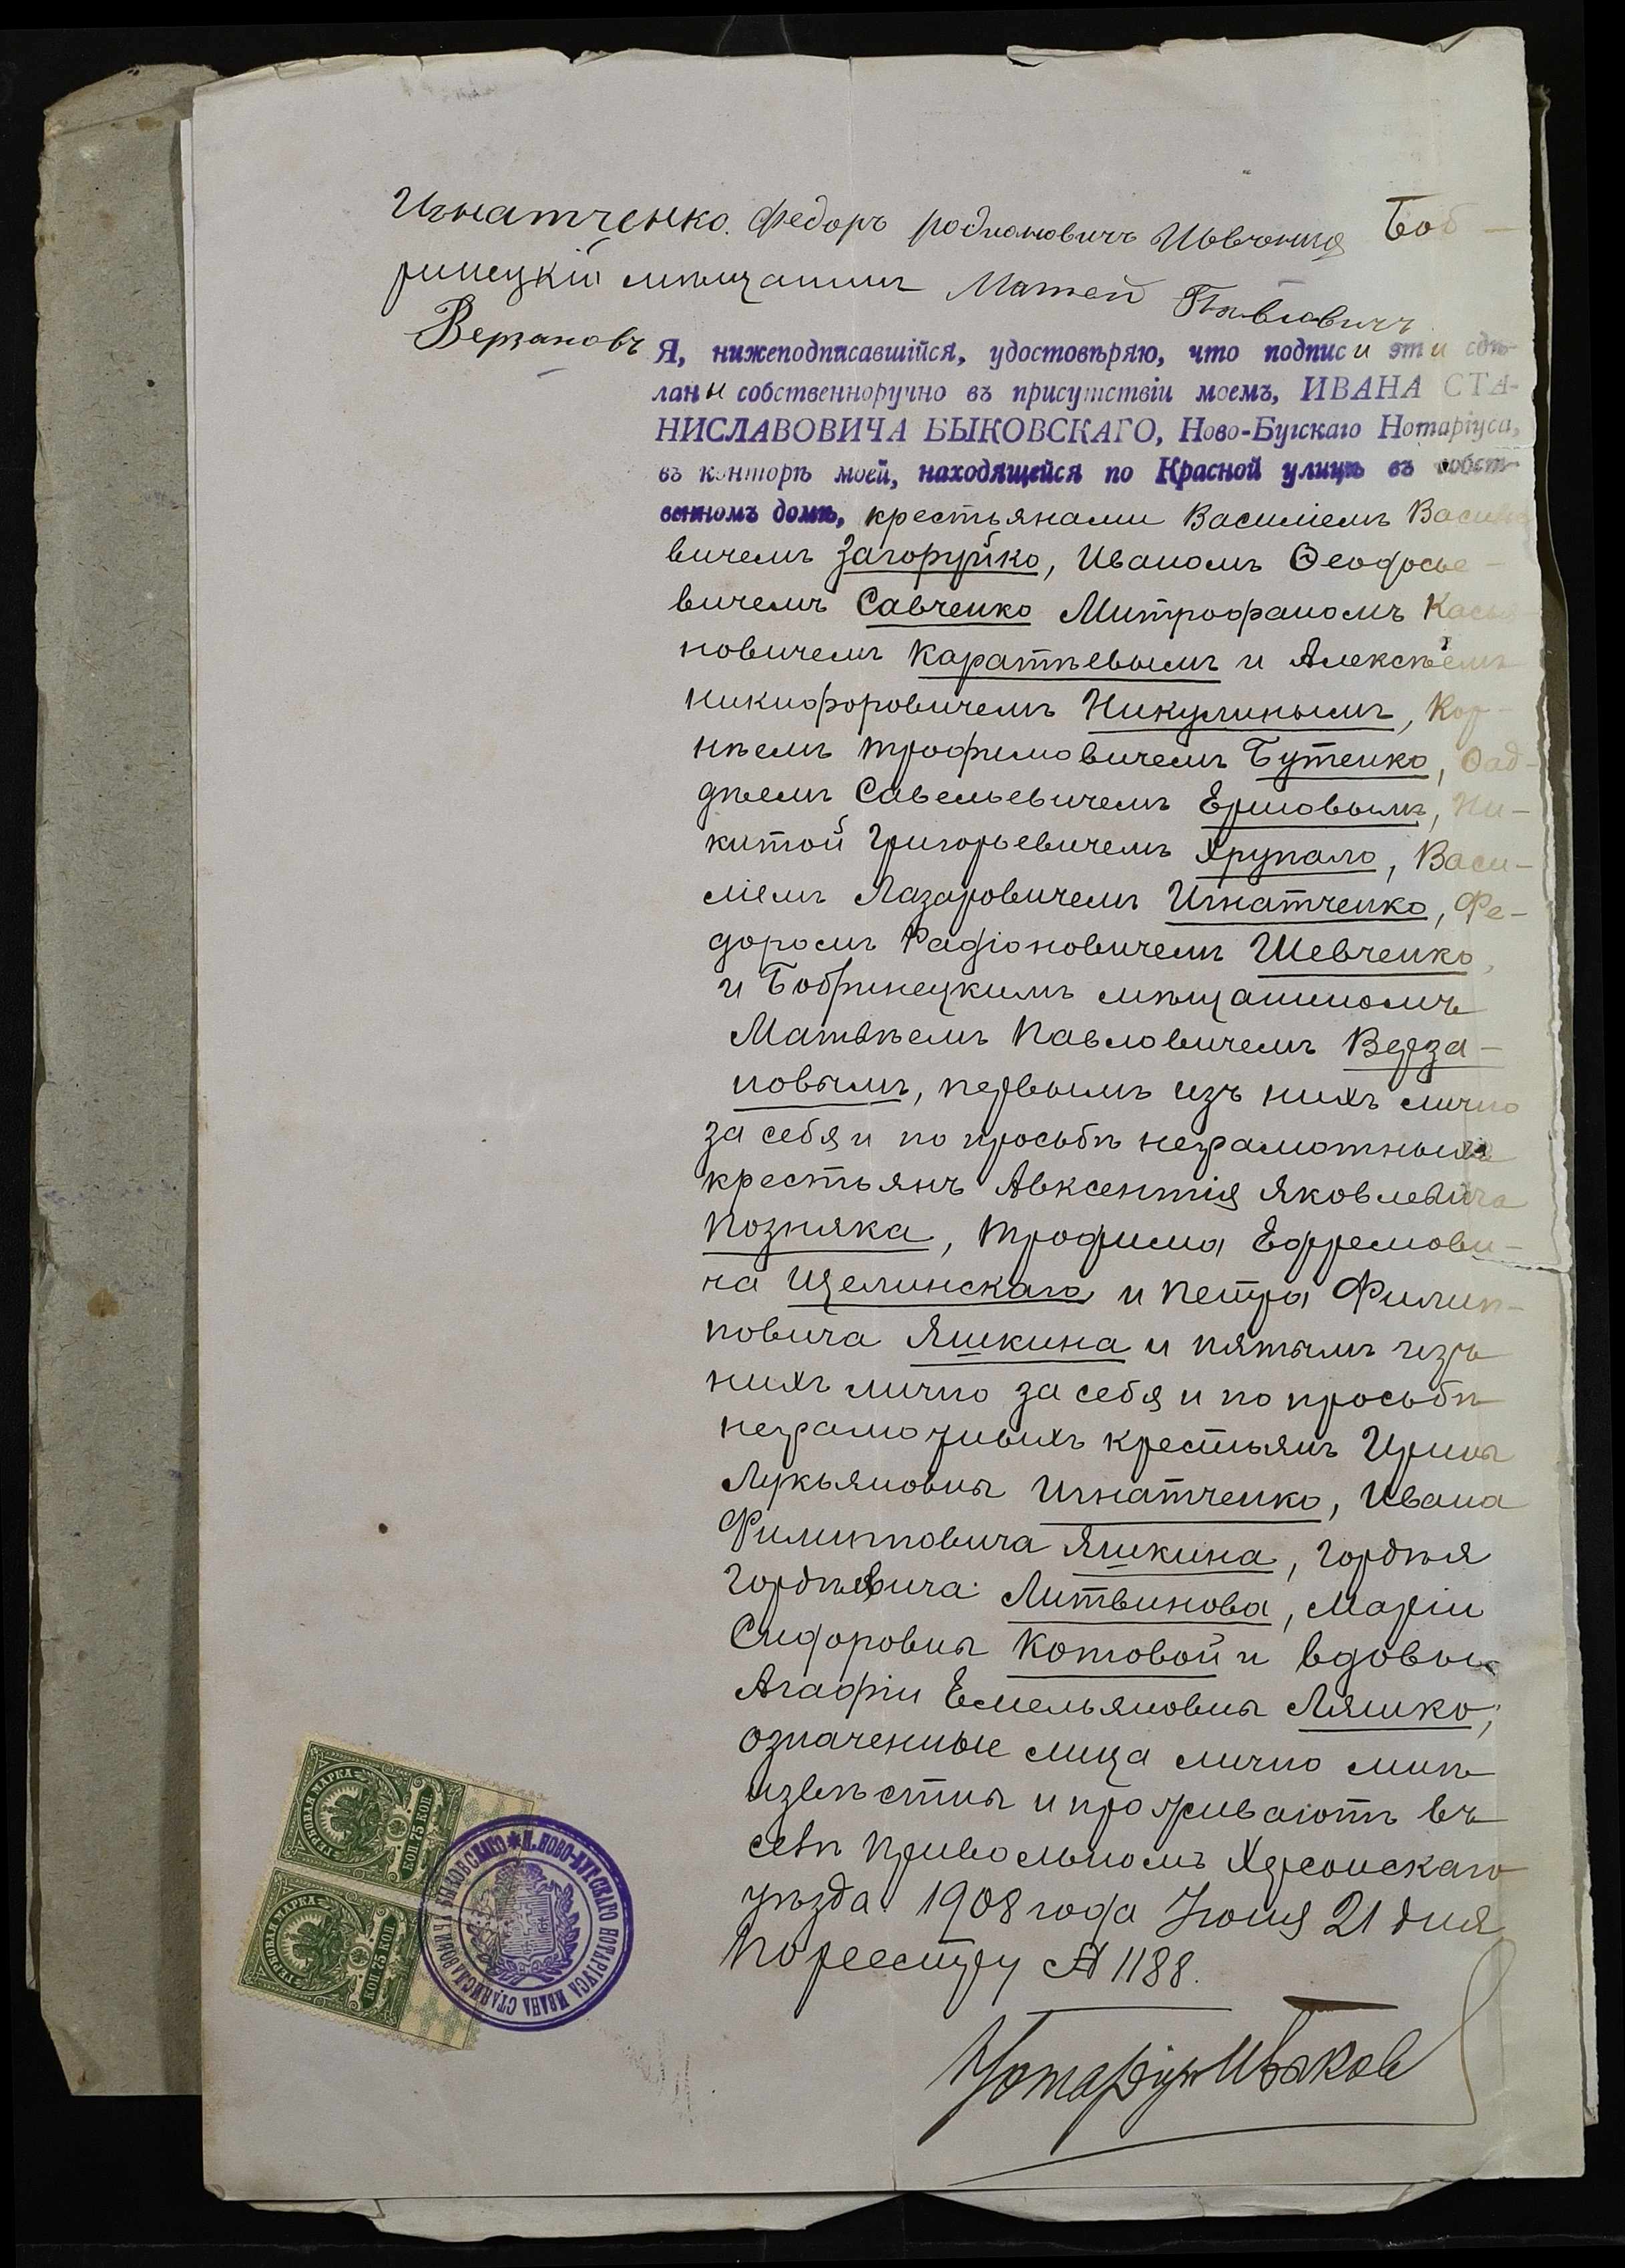 Игнатченко. Федоръ родионовичъ Шевченко Боб-
ринецкій мѣщанинъ Матвей Павловичъ
Верзановъ
Я, нижеподписавшійся, удостовѣряю, что подписи эти сдѣ-
ланы собственноручно въ присутствіи моемъ, ИВАНА СТА-
НИСЛАВОВИЧА БЫКОВСКАГО, Ново-Бугскаго Нотаріуса,
въ конторѣ моей, находящейся по Красной улицѣ въ собст-
венномъ домѣ, крестьянами Василіемъ Василье
вичемъ Загоруйко, Иваномъ Ѳеодосье-
вичемъ Савченко Митрофаномъ Касья
новичемъ Каратѣевымъ и Алексѣемъ
Никифоровичемъ Никулинымъ, Кор-
нѣемъ Трофимовичемъ Бутенко, Ѳад-
дѣемъ Савельевичемъ Ершовымъ, Ни-
китой Григорьевичемъ Хрупало, Васи-
ліемъ Лазаровичемъ Игнатченко, Фе-
доромъ Радіоновичемъ Шевченко,
и Бобринецкимъ мѣщаниномъ
Матвѣемъ Павловичемъ Верза-
новымъ, первымъ изъ нихъ лично
за себя и по просьбѣ неграмотныхъ
крестьянъ Авксентія Яковлевича
Позняка, Трофима Ефремови-
ча Щелинскаго и Петра Филип-
повича Яшкина и пятымъ изъ
нихъ лично за себя и по просьбѣ
неграмотныхъ крестьянъ Ирины
Лукьяновны Игнатченко, Ивана
Филипповича Яшкина, Гордѣя
Гордѣевича Литвинова, Маріи
Сидоровны Котовой и вдовы
Агафіи Емельяновны Ляшко;
означенные лица лично мнѣ
извѣстны и проживаютъ въ
селѣ Привольномъ Херсонскаго
уѣзда. 1908 года Іюня 21 дня
По реестру № 1188.
Нотаріусъ ИБыков
ГЕРБОВАЯ МАРКА
КОП 75 КОП
ГЕРБОВАЯ МАРКА
КОП 75 КОП
П. НОВО-БУГСКАГО НОТАРІУСА ИВАНА СТАНИСЛАВОВИЧА БЫКОВСКАГО